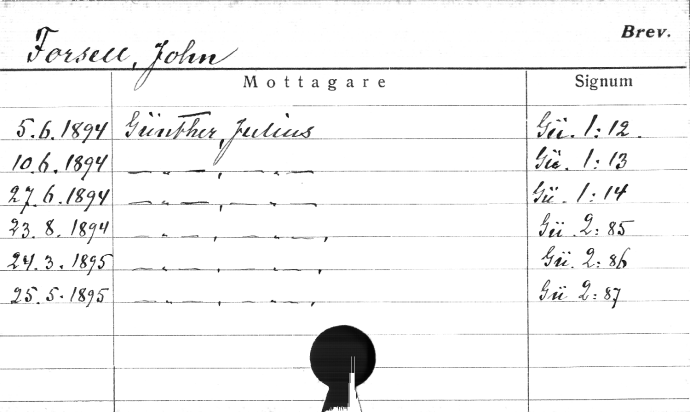 Brev.
Forsell, John
Mottagare Signum
5.6.1894 Günther, Julius Gü. 1:12.
10.6.1894 — " —, — " — Gü. 1:13
27.6.1894 — " —, — " — Gü. 1:14
23.8.1894 — " —, — " —, Gü. 2:85
24.3.1895 — " —, — " —, Gü. 2:86
25.5.1895 — " —, — " —, Gü 2:87